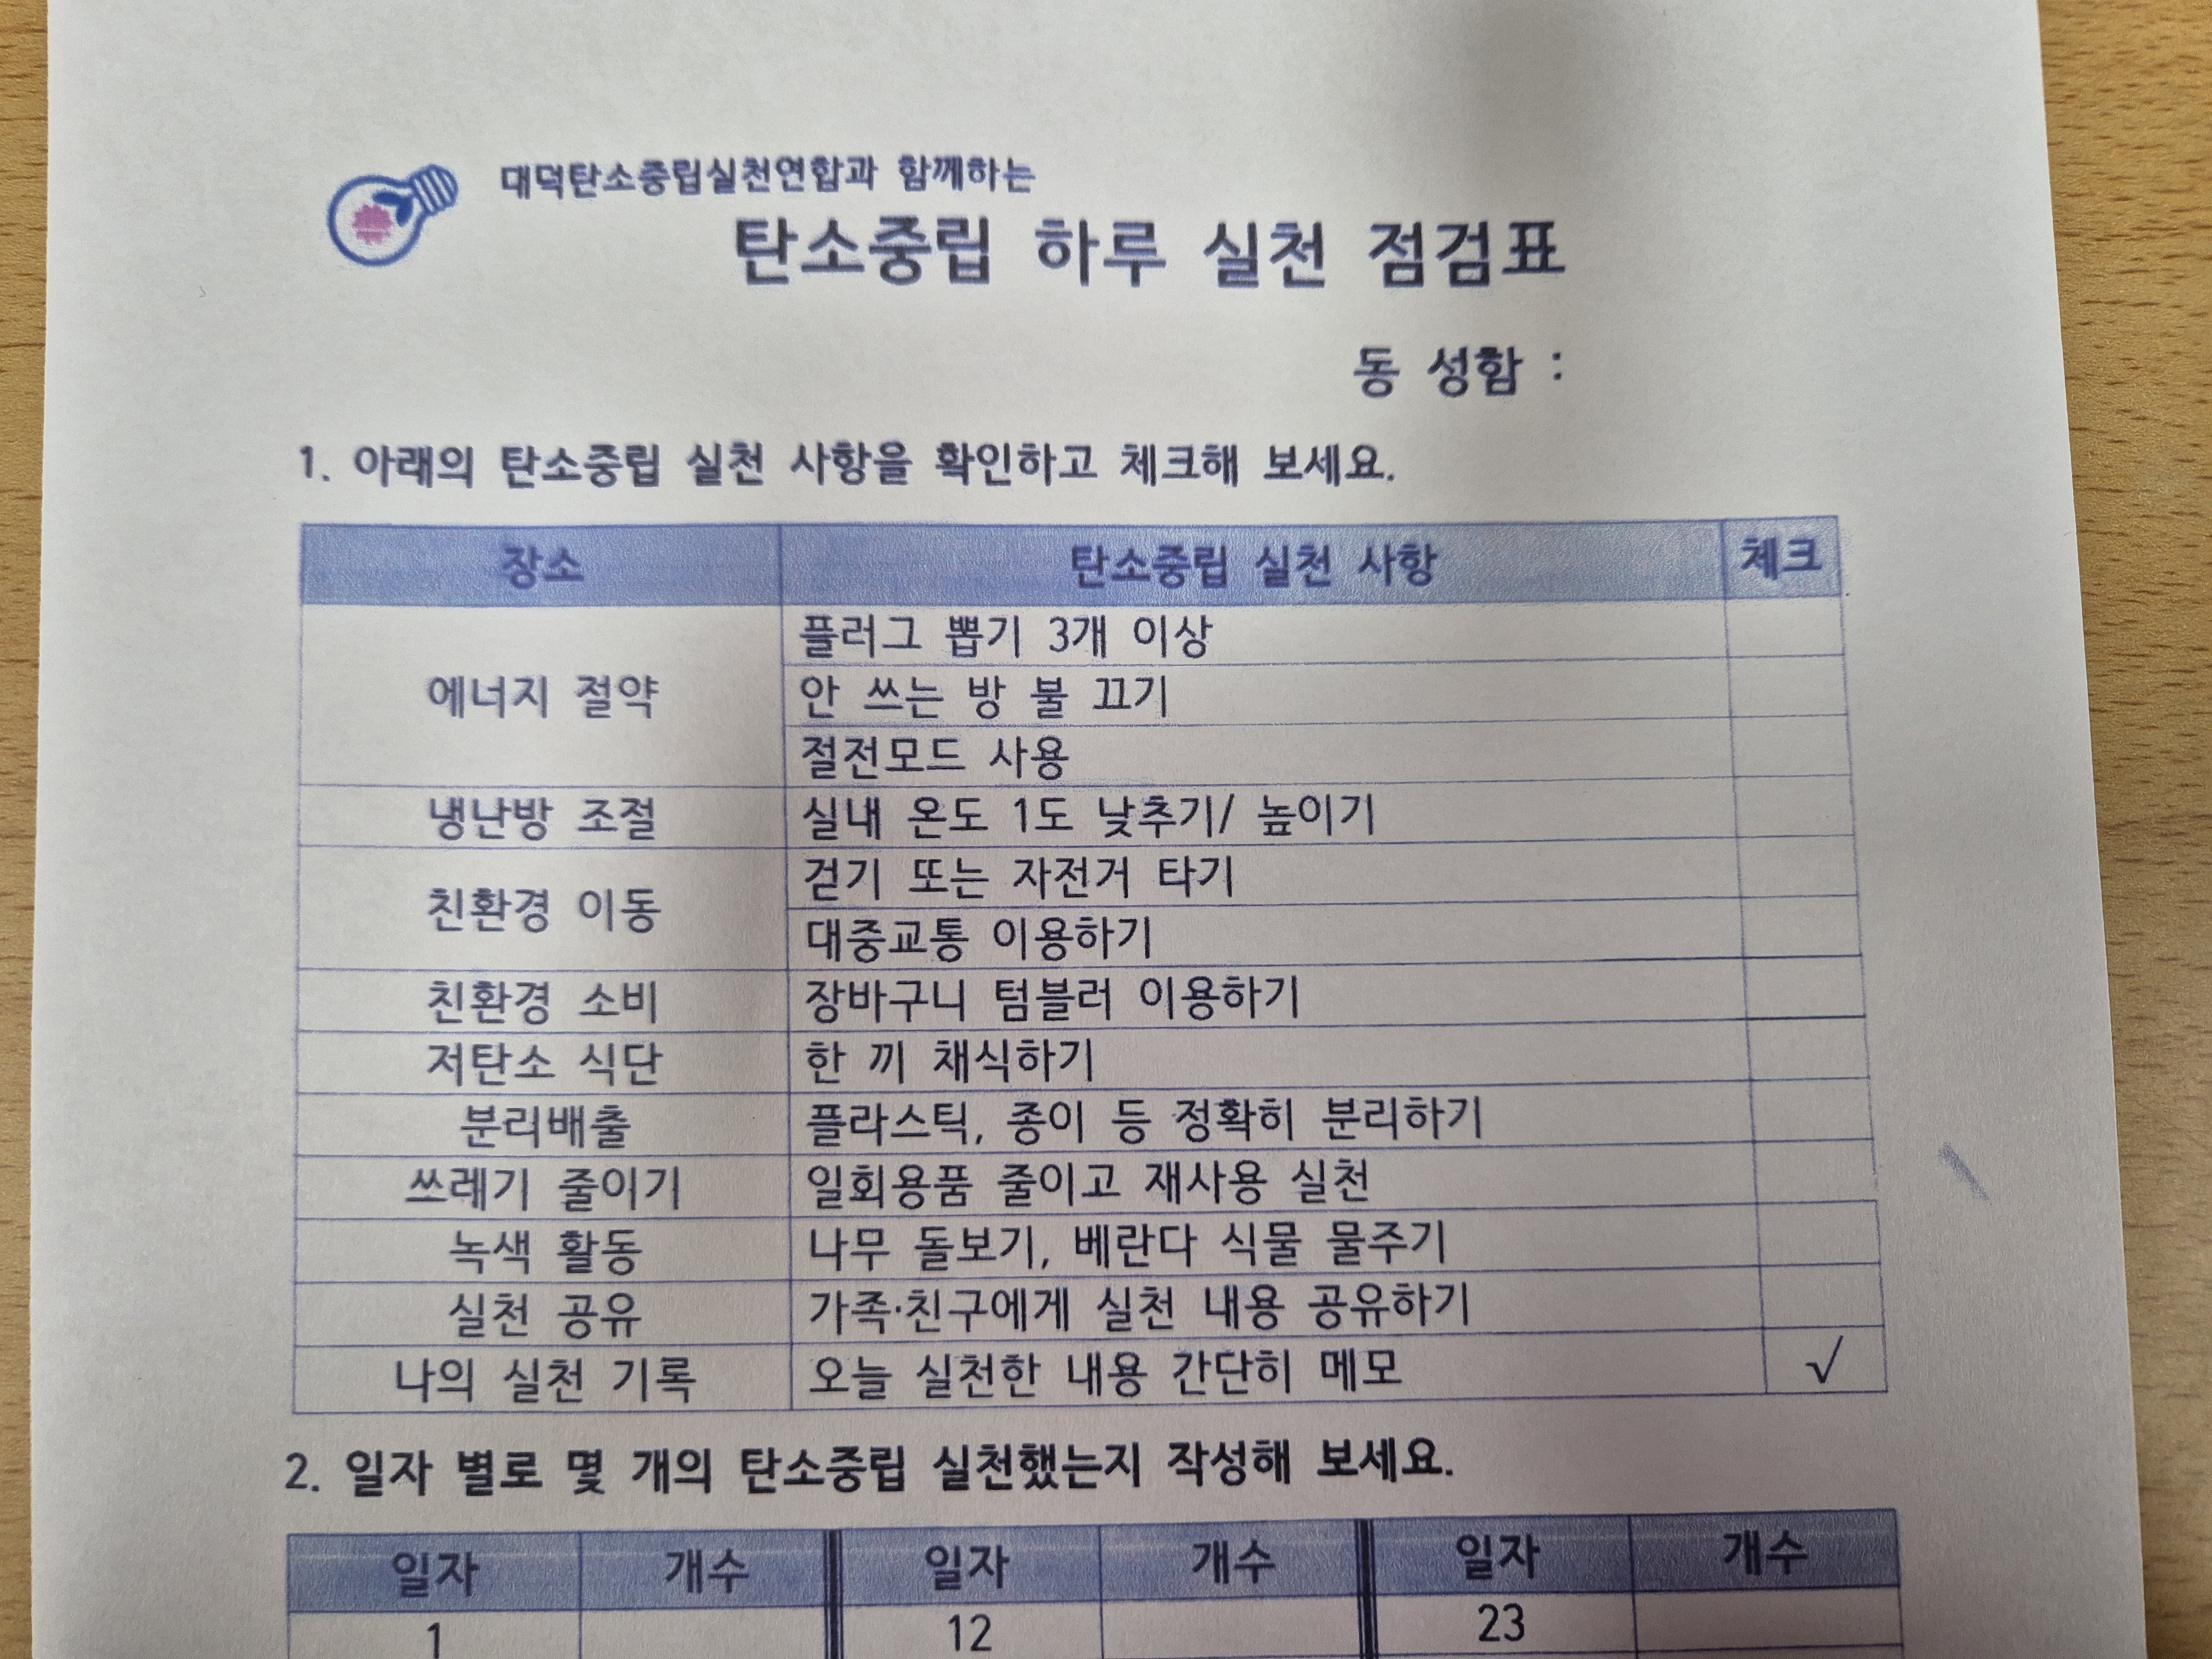 대덕탄소중립실천연합과 함께하는
탄소중립 하루 실천 점검표
동 성함 :
1. 아래의 탄소중립 실천 사항을 확인하고 체크해 보세요.
장소 탄소중립 실천 사항 체크
에너지 절약 플러그 뽑기 3개 이상
안 쓰는 방 불 끄기
절전모드 사용
냉난방 조절 실내 온도 1도 낮추기/ 높이기
친환경 이동 걷기 또는 자전거 타기
대중교통 이용하기
친환경 소비 장바구니 텀블러 이용하기
저탄소 식단 한 끼 채식하기
분리배출 플라스틱, 종이 등 정확히 분리하기
쓰레기 줄이기 일회용품 줄이고 재사용 실천
녹색 활동 나무 돌보기, 베란다 식물 물주기
실천 공유 가족·친구에게 실천 내용 공유하기
나의 실천 기록 오늘 실천한 내용 간단히 메모 √
2. 일자 별로 몇 개의 탄소중립 실천했는지 작성해 보세요.
일자 개수 일자 개수 일자 개수
1 12 23